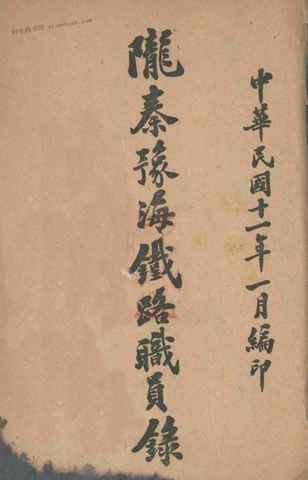 中華民國十一年一月編印
隴秦豫海鐵路職員錄